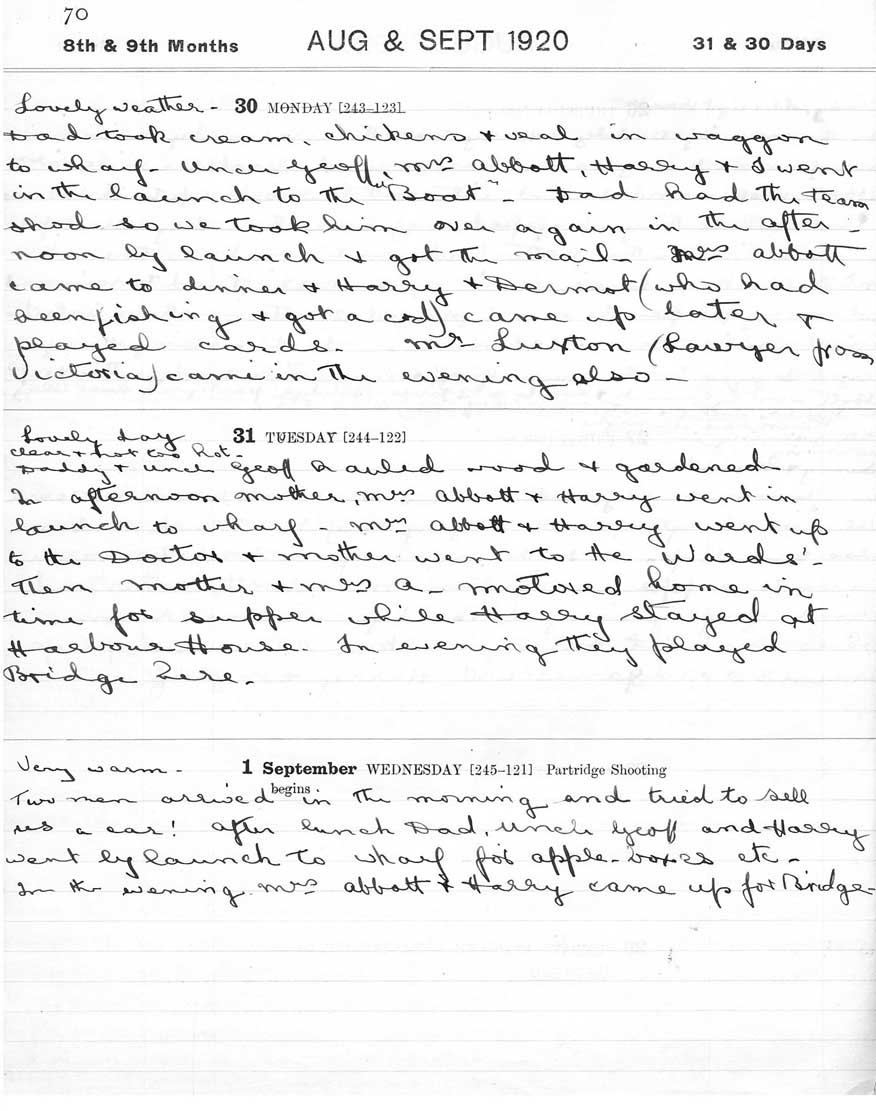 70
8th & 9th Months AUG & SEPT 1920 31 & 30 Days
Lovely weather - 30 MONDAY [243–123]
Dad took cream, chickens & veal in waggon
to wharf - Uncle Geoff, Mrs Abbott, Harry & I went
in the launch to the "Boat" - Dad had the team
shod so we took him over again in the after -
noon by launch & got the mail - Mrs Abbott
came to dinner & Harry & Dermot (who had
been fishing & got a cod) came up later &
played cards - Mr Luxton (Lawyer from
Victoria) came in the evening also -
Lovely day 31 TUESDAY [244–122]
clear & hot too hot -
Daddy & Uncle Geoff hauled wood & gardened
In afternoon mother, Mrs Abbott & Harry went in
launch to wharf - Mrs Abbott & Harry went up
to the Doctor & mother went to the Wards' -
Then mother & Mrs A - motored home in
time for supper while Harry stayed at
Harbour House. In evening they played
Bridge here -
Very warm - 1 September WEDNESDAY [245–121] Partridge Shooting
begins
Two men arrived in the morning and tried to sell
us a car! After lunch Dad, Uncle Geoff and Harry
went by launch to wharf for apple-boxes etc -
In the evening Mrs Abbott & Harry came up for Bridge -